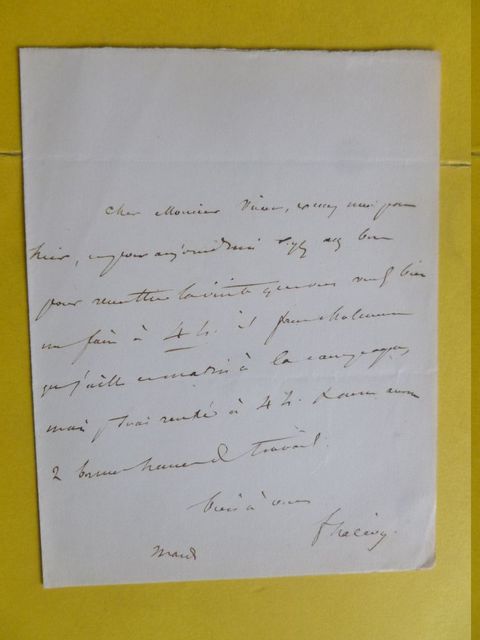 Cher Monsieur Vivier, excusez moi pour
hier, et pour aujourd'hui soyez assez bon
pour remettre la visite que vous voulez bien
me faire à 4 h. il faut absolument
que j'aille ce matin à la campagne,
mais je serai rendu à 4 h. nous aurons
2 bonnes heures de travail.
bien à vous
f halévy.
Mardi